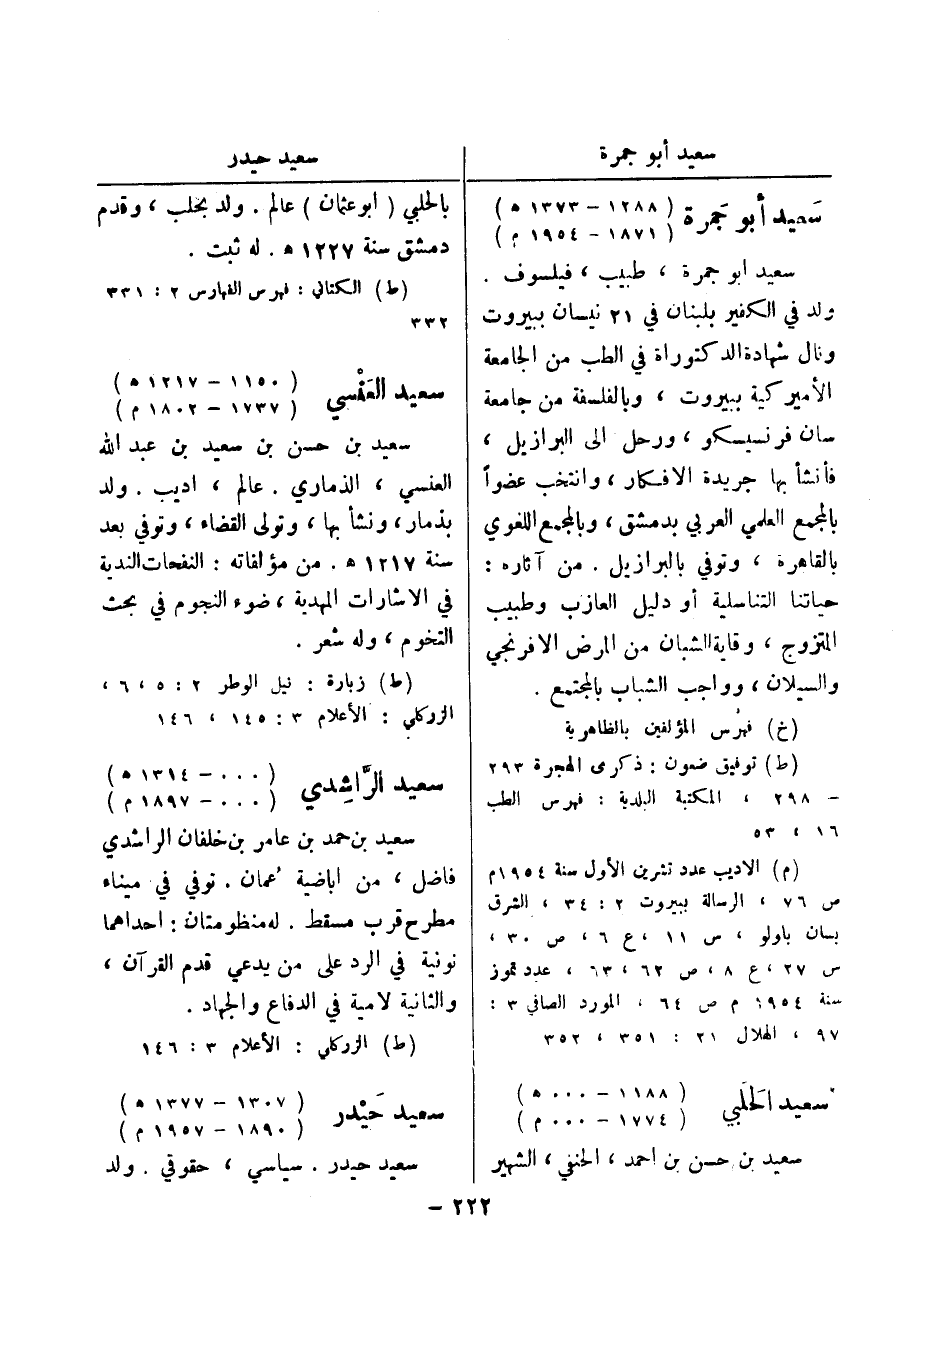 سعيد أبو جمرة
سَعيد أبو جَمرة ( ١٢٨٨ - ١٣٧٣ ه )
( ١٨٧١ - ١٩٥٤ م )
سعيد ابو جمرة ، طبيب ، فيلسوف .
ولد في الكفير بلبنان في ٢١ نيسان ببيروت
ونال شهادة الدكتوراة في الطب من الجامعة
الأميركية ببيروت ، وبالفلسفة من جامعة
سان فرنسيسكو ، ورحل الى البرازيل ،
فأنشأ بها جريدة الافكار ، وانتخب عضواً
بالمجمع العلمي العربي بدمشق ، وبالمجمع اللغوي
بالقاهرة ، وتوفي بالبرازيل . من آثاره :
حياتنا التناسلية أو دليل العازب وطبيب
المتزوج ، وقاية الشبان من المرض الافرنجي
والسيلان ، وواجب الشباب بالمجتمع .
(خ) فهرس المؤلفين بالظاهرية
(ط) توفيق ضعون : ذكرى الهجرة ٢٩٣
- ٢٩٨ ، المكتبة البلدية : فهرس الطب
١٦ ، ٥٣
(م) الاديب عدد تشرين الأول سنة ١٩٥٤م
ص ٧٦ ، الرسالة ببيروت ٢ : ٣٤ ، الشرق
بسان باولو ، س ١١ ، ع ٦ ، ص ٣٠ ،
س ٢٧ ، ع ٨ ، ص ٦٢ ، ٦٣ ، عدد تموز
سنة ١٩٥٤ م ص ٦٤ ، المورد الصافي ٣ :
٩٧ ، الهلال ٢١ : ٣٥١ ، ٣٥٢
سعيد الحَلَبي ( ١١٨٨ - ٠٠٠ ه )
( ١٧٧٤ - ٠٠٠ م )
سعيد بن حسن بن احمد ، الحنفي ، الشهير
سعيد حيدر
بالحلبي ( ابو عثمان ) عالم . ولد بحلب ، وقدم
دمشق سنة ١٢٢٧ ه . له ثبت .
(ط) الكتاني : فهرس الفهارس ٢ : ٣٣١
٣٣٢
سعيد العَنْسي ( ١١٥٠ - ١٢١٧ ه )
( ١٧٣٧ - ١٨٠٢ م )
سعيد بن حسن بن سعيد بن عبد الله
العنسي ، الذماري . عالم ، اديب . ولد
بذمار ، ونشأ بها ، وتولى القضاء ، وتوفي بعد
سنة ١٢١٧ ه . من مؤلفاته : النفحات الندية
في الاشارات المهدية ، ضوء النجوم في بحث
التخوم ، وله شعر .
(ط) زبارة : نيل الوطر ٢ : ٥ ، ٦ ،
الزركلي : الأعلام ٣ : ١٤٥ ، ١٤٦
سعيد الرَّاشِدي ( ٠٠٠ - ١٣١٤ ه )
( ٠٠٠ - ١٨٩٧ م )
سعيد بن حمد بن عامر بن خلفان الراشدي
فاضل ، من اباضية عُمان . توفي في ميناء
مطرح قرب مسقط . له منظومتان : احداهما
نونية في الرد على من يدعي قدم القرآن ،
والثانية لامية في الدفاع والجهاد .
(ط) الزركلي : الأعلام ٣ : ١٤٦
سعيد حَيْدر ( ١٣٠٧ - ١٣٧٧ ه )
( ١٨٩٠ - ١٩٥٧ م )
سعيد حيدر . سياسي ، حقوقي . ولد
٢٢٢ -